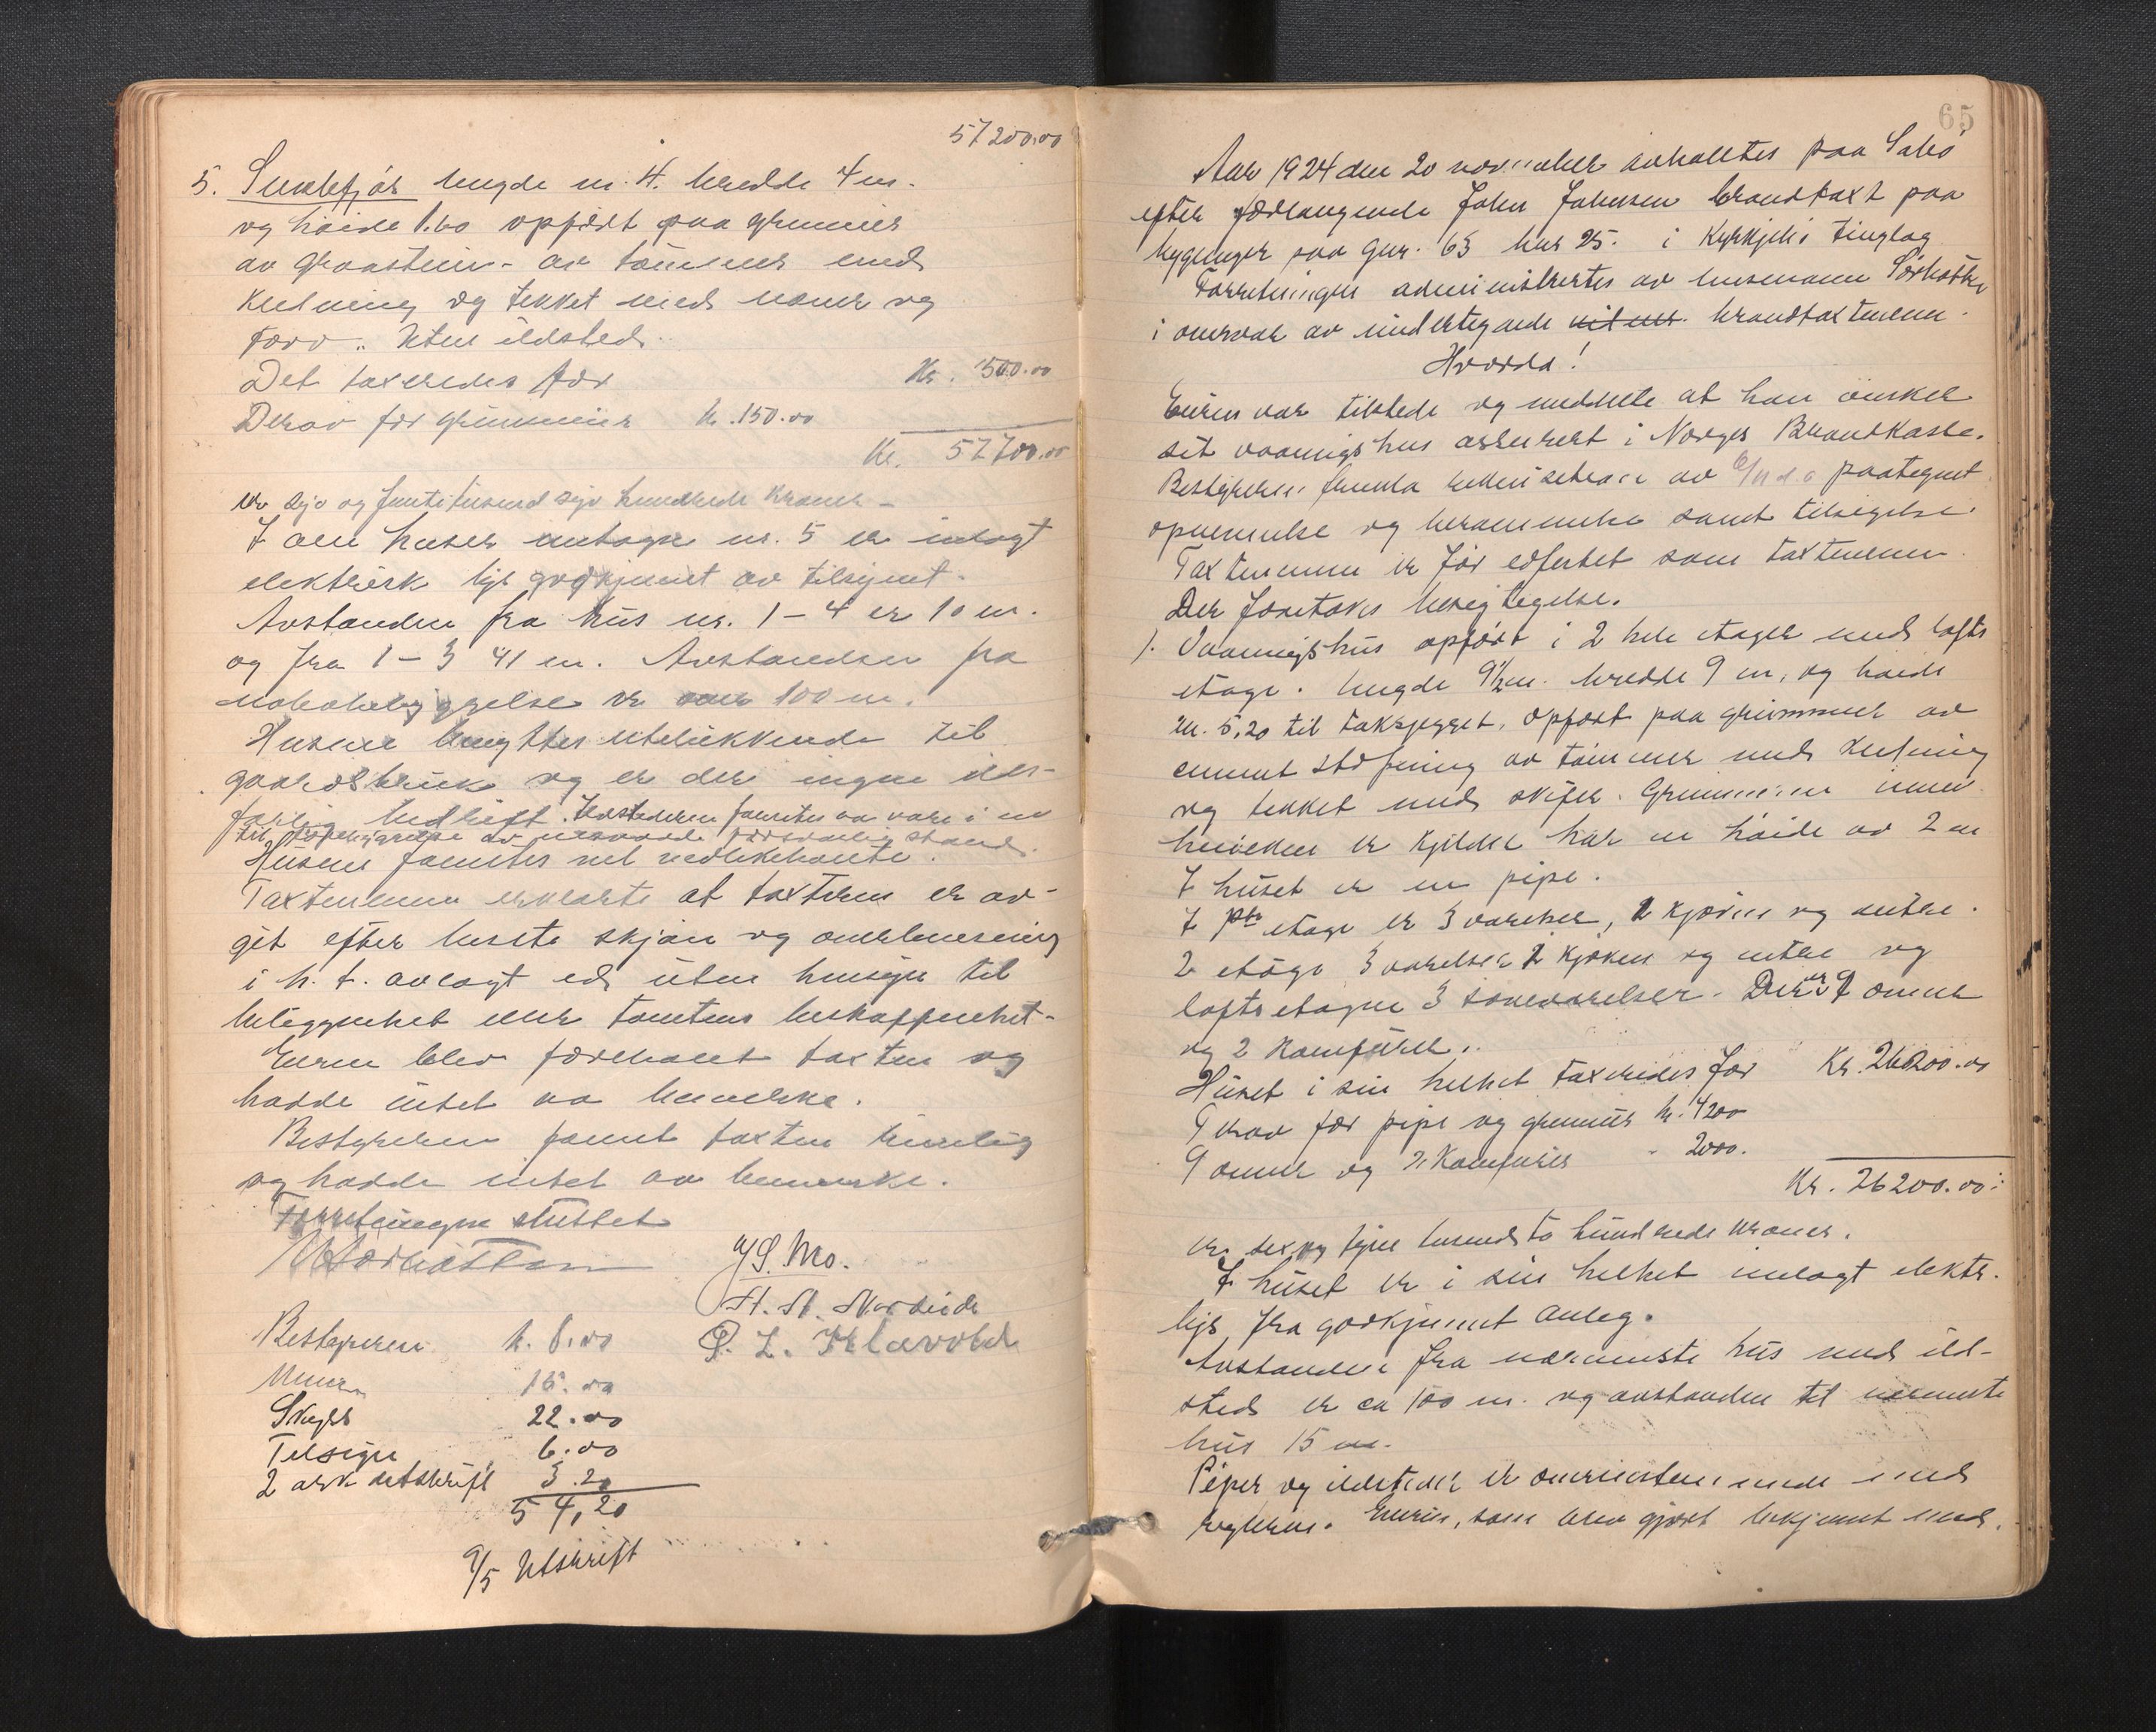 57200.00
5. Smalefjös lengde m. 4. bredde 4 m.
og höide 1.60 opført paa grunmur
av graastein - av tömmer med
Kledning og tekket med næver og
torv. Uten ildsted.
Det taxeredes for Kr. 500.00
Derav for grunmur kr. 150.00
Kr. 57700.00
er syv og femtitusend syv hundrede kroner -
I alle huser undtagen nr. 5 er indlagt
elektrisk lys godkjennt av tilsynet.
Avstanden fra hus nr. 1 - 4 er 10 m.
og fra 1 - 3 41 m. Avstanden fra
nabobebyggelse er over 100 m.
Husene benyttes utelukkende til
gaardsbruk og er der ingen ilds-
farlig bedrift. Ildstederne fantes aa være i en
til forebyggelse av ildsvaade forsvarlig stand.
Husene fantes vel vedlikeholdte.
Taxtmennene erklærte at taxten er av-
git efter beste skjön og overbevisning
i h. t. avlagt ed uten hensyn til
beliggenhet eller tomtens beskaffenhet.
Eieren blev foreholdt taxten og
hadde intet aa bemerke.
Bestyreren fandt taxten rimelig
og hadde intet aa bemerke.
Forretningen sluttet
J. S. Mo.
Bestyreren k. 8.00
Menn 15.00
Skyds 22.00
Tilsign 6.00
2 ark utskrift 3.20
54,20
9/5 Utskrift
65
Aar 1924 den 20 november avholdtes paa Sabö
efter forlangende John Johnsen brandtaxt paa
bygninger paa gnr. 63 bnr 25. i Kyrkjebö tinglag
Forretningen administrertes av lensmann Sörbotten
i overvær av undertegnede brandtaxtmenn.
Hvorda!
Eieren var tilstede og meddelte at han önsker
sit vaaningshus assurert i Norges Brandkasse.
Bestyreren fremla rekvisition av 6/11 d. a paategnet
opnevnelse og berammelse samt tilsigelse.
Taxtmennene er för edfestet som taxtmenn.
Der foretokes besigtigelse.
1. Vaaningshus opfört i 2 hele etager med lofts
etage. lengde 9½ m. bredde 9 m, og höide
m. 5,20 til takskjegget, opfört paa grunmur av
cement stöpning av tömmer med kledning
og tekket med skifer. Grunmuren innen
hvilken er kjelder har en höide av 2 m
I huset er en pipe.
I 1ste etage er 3 værelser, 1 kjökken og entre.
2 etage 3 værelser 1 kjöken og entre og
loftsetagen 3 soveværelser. Der er 9 ovner
og 2 komfürer.
Huset i sin helhet taxeredes for Kr. 26200.00
Derav for pipe og grunmur kr. 4200
9 ovner og 2 Komfurer - 2000.
Kr. 26200.00:
er sex og tyve tusend to hundrede kroner.
I huset er i sin helhet indlagt elektr.
lys fra godkjennt anleg.
Avstanden fra nærmeste hus med ild-
sted er ca 100 m. og avstanden til nærmeste
hus 15 m.
Piper og ildsteder er overenstemmende med
reglerne. Eieren, som blev gjort bekjennt med